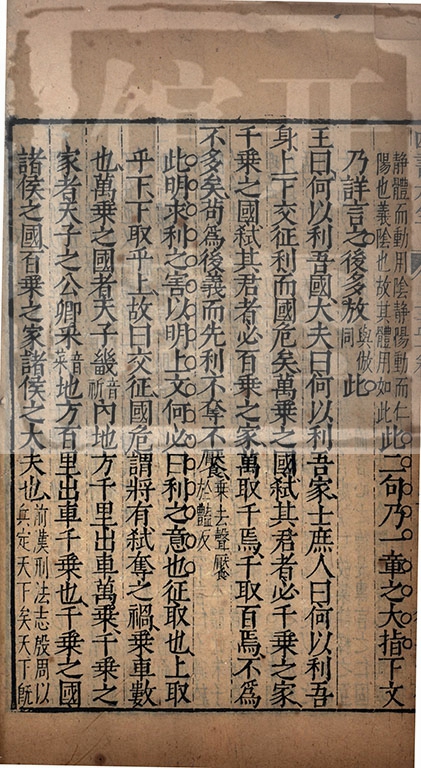 靜體而動用陰靜陽動而仁陽也義陰也故其體用如此此二句乃一章之大指下文
乃詳言之後多放與倣同此
王曰何以利吾國大夫曰何以利吾家士庶人曰何以利吾
身上下交征利而國危矣萬乘之國弒其君者必千乘之家
千乘之國弒其君者必百乘之家萬取千焉千取百焉不為
不多矣苟為後義而先利不奪不饜乘去聲饜於豔反
此明求利之害以明上文何必曰利之意也征取也上取
乎下下取乎上故曰交征國危謂將有弒奪之禍乘車數
也萬乘之國者天子畿音祈內地方千里出車萬乘千乘之
家者天子之公卿采音菜地方百里出車千乘也千乘之國
諸侯之國百乘之家諸侯之大夫也前漢刑法志殷周以兵定天下矣天下旣